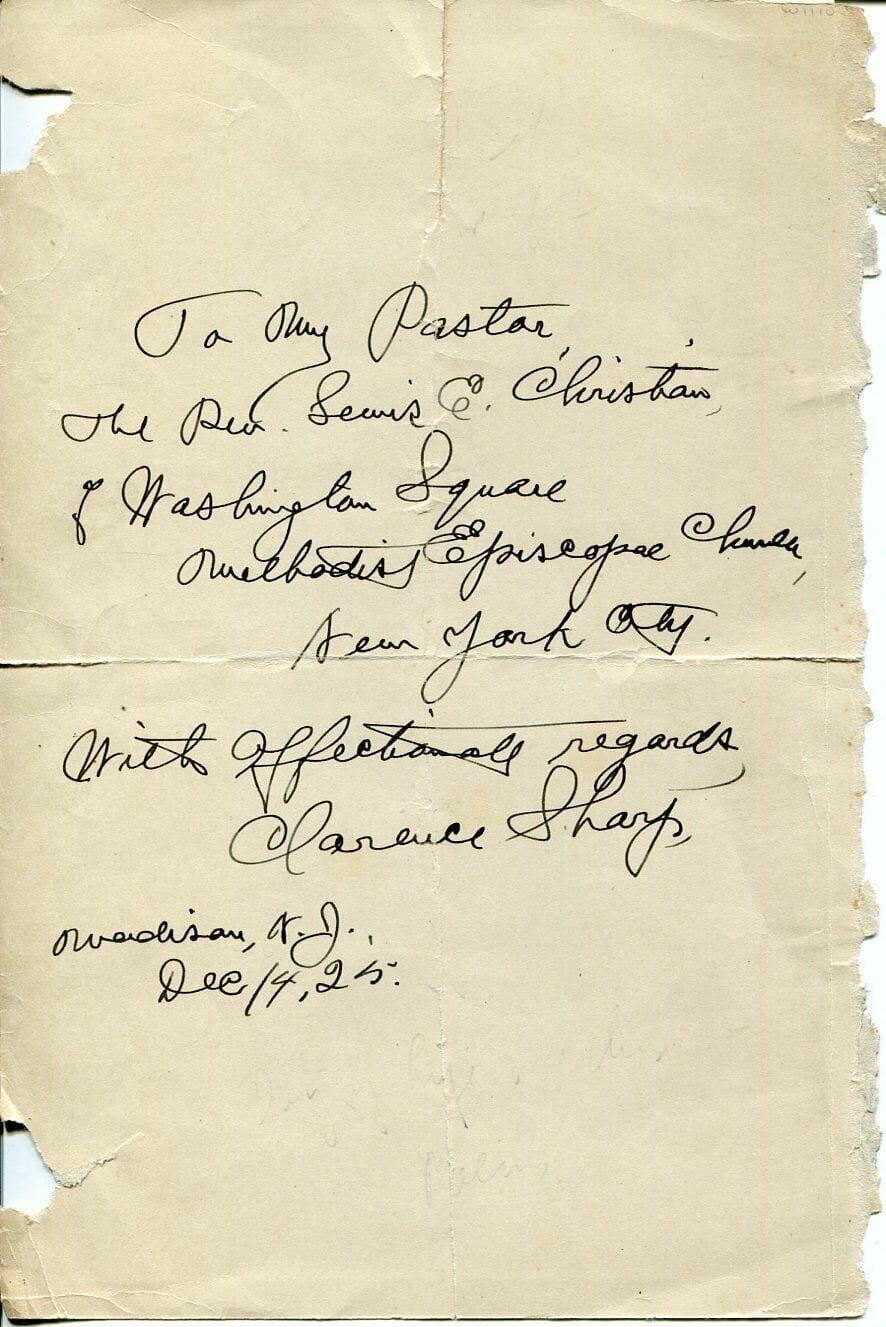 To My Pastor,
The Rev. Lewis E. Christian,
of Washington Square
Methodist Episcopal Church,
New York City.
With affectionate regards,
Clarence Sharp,
Madison, N.J.,
Dec 14, 25.